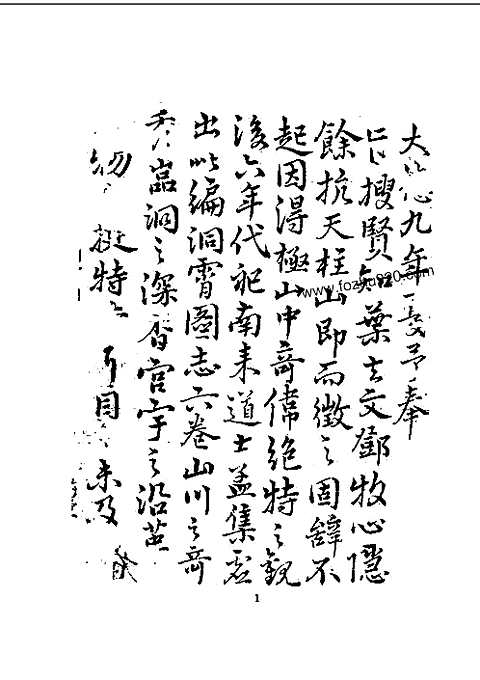 大德九年
旨搜賢知葉玄文鄧牧心隱
餘抗天柱山即而徵之固辞不
起因得極山中奇偉絶特之觀
後六年代祀南来道士孟集虚
出此編洞霄圖志六卷山川之奇
嵓洞之深杳宫宇之沿革
挺特 耳目 未及
www.fozhu920.com
1